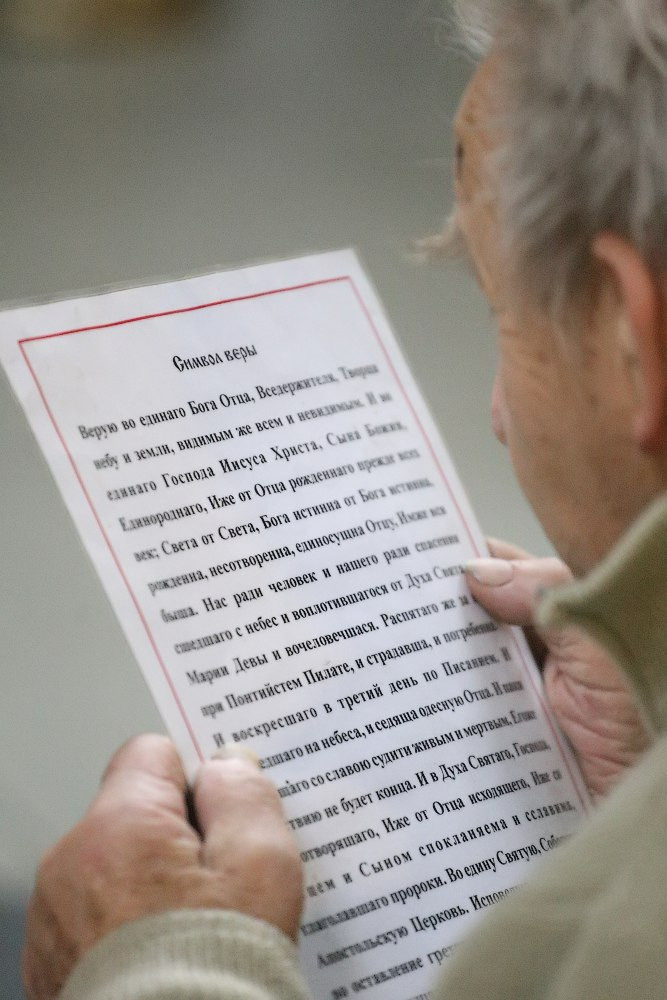 Символ веры
Верую во единаго Бога Отца, Вседержителя, Творца
небу и земли, видимым же всем и невидимым. И во
единаго Господа Иисуса Христа, Сына Божия,
Единороднаго, Иже от Отца рожденнаго прежде всех
век; Света от Света, Бога истинна от Бога истинна,
рожденна, несотворенна, единосущна Отцу, Имже вся
быша. Нас ради человек и нашего ради спасения
сшедшаго с небес и воплотившагося от Духа Свята
Марии Девы и вочеловечшася. Распятаго же за
при Понтийстем Пилате, и страдавша, и погребенна.
И воскресшаго в третий день по Писанием. И
едшаго на небеса, и седяща одесную Отца. И паки
щаго со славою судити живым и мертвым, Егоже
твию не будет конца. И в Духа Святаго, Господа,
отворящаго, Иже от Отца исходящаго, Иже со
цем и Сыном спокланяема и сславима,
глаголавшаго пророки. Во едину Святую, Собо
Апостольскую Церковь. Испове
во оставление грех